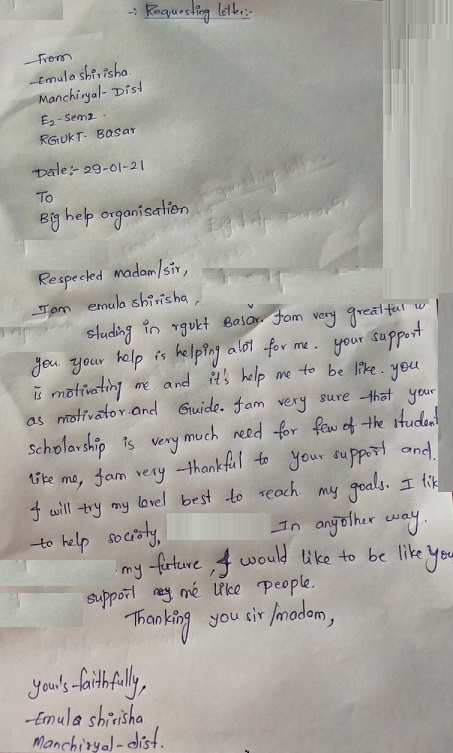 -> Requesting letter:-
From
Emula shirisha
Manchiryal- Dist
E2-sem2.
RGUKT- Basar
Date:- 29-01-21
To
Big help organisation
Respected madam/sir,
I am emula shirisha,
studing in rgukt Basar. I am very greatful
you. your help is helping alot for me. your support
is motivating me and it's help me to be like. you
as motivator. and Guide. I am very sure that your
scholarship is very much need for few of the student
like me, I am very thankful to your support and.
I will try my level best to reach my goals. I lik
to help socioty, In anyother way.
my future, I would like to be like you
support me like people.
Thanking you sir/madam,
your's faithfully,
Emula shirisha
Manchiryal-dist.